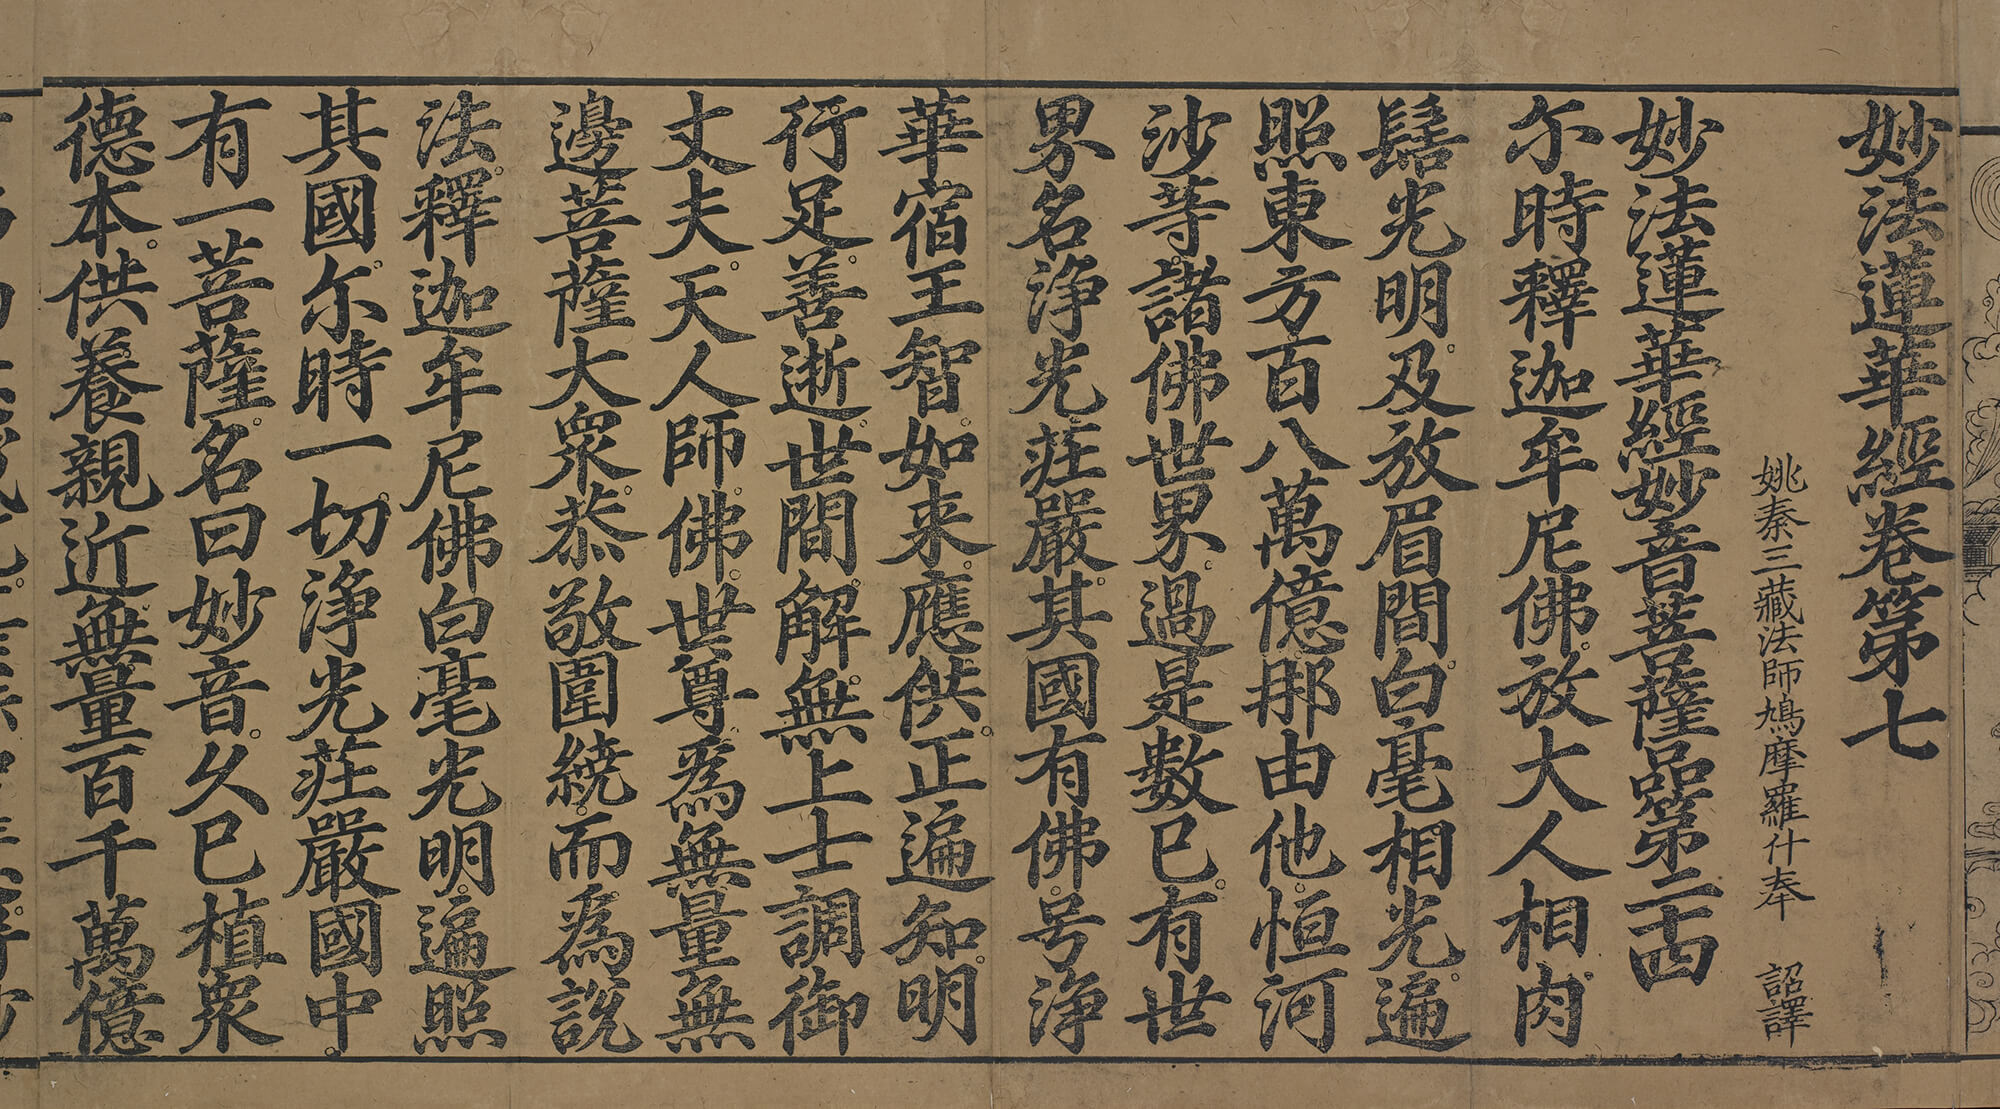 妙法蓮華經卷第七
姚秦三藏法師鳩摩羅什奉　詔譯
妙法蓮華經妙音菩薩品第二十四
尓時釋迦牟尼佛放大人相肉
髻光明及放眉間白毫相光遍
照東方百八萬億那由他恒河
沙等諸佛世界過是數已有世
界名淨光莊嚴其國有佛号淨
華宿王智如来應供正遍知明
行足善逝世間解無上士調御
丈夫天人師佛世尊為無量無
邊菩薩大衆恭敬圍繞而為說
法釋迦牟尼佛白毫光明遍照
其國尓時一切淨光莊嚴國中
有一菩薩名曰妙音久已植衆
德本供養親近無量百千萬億